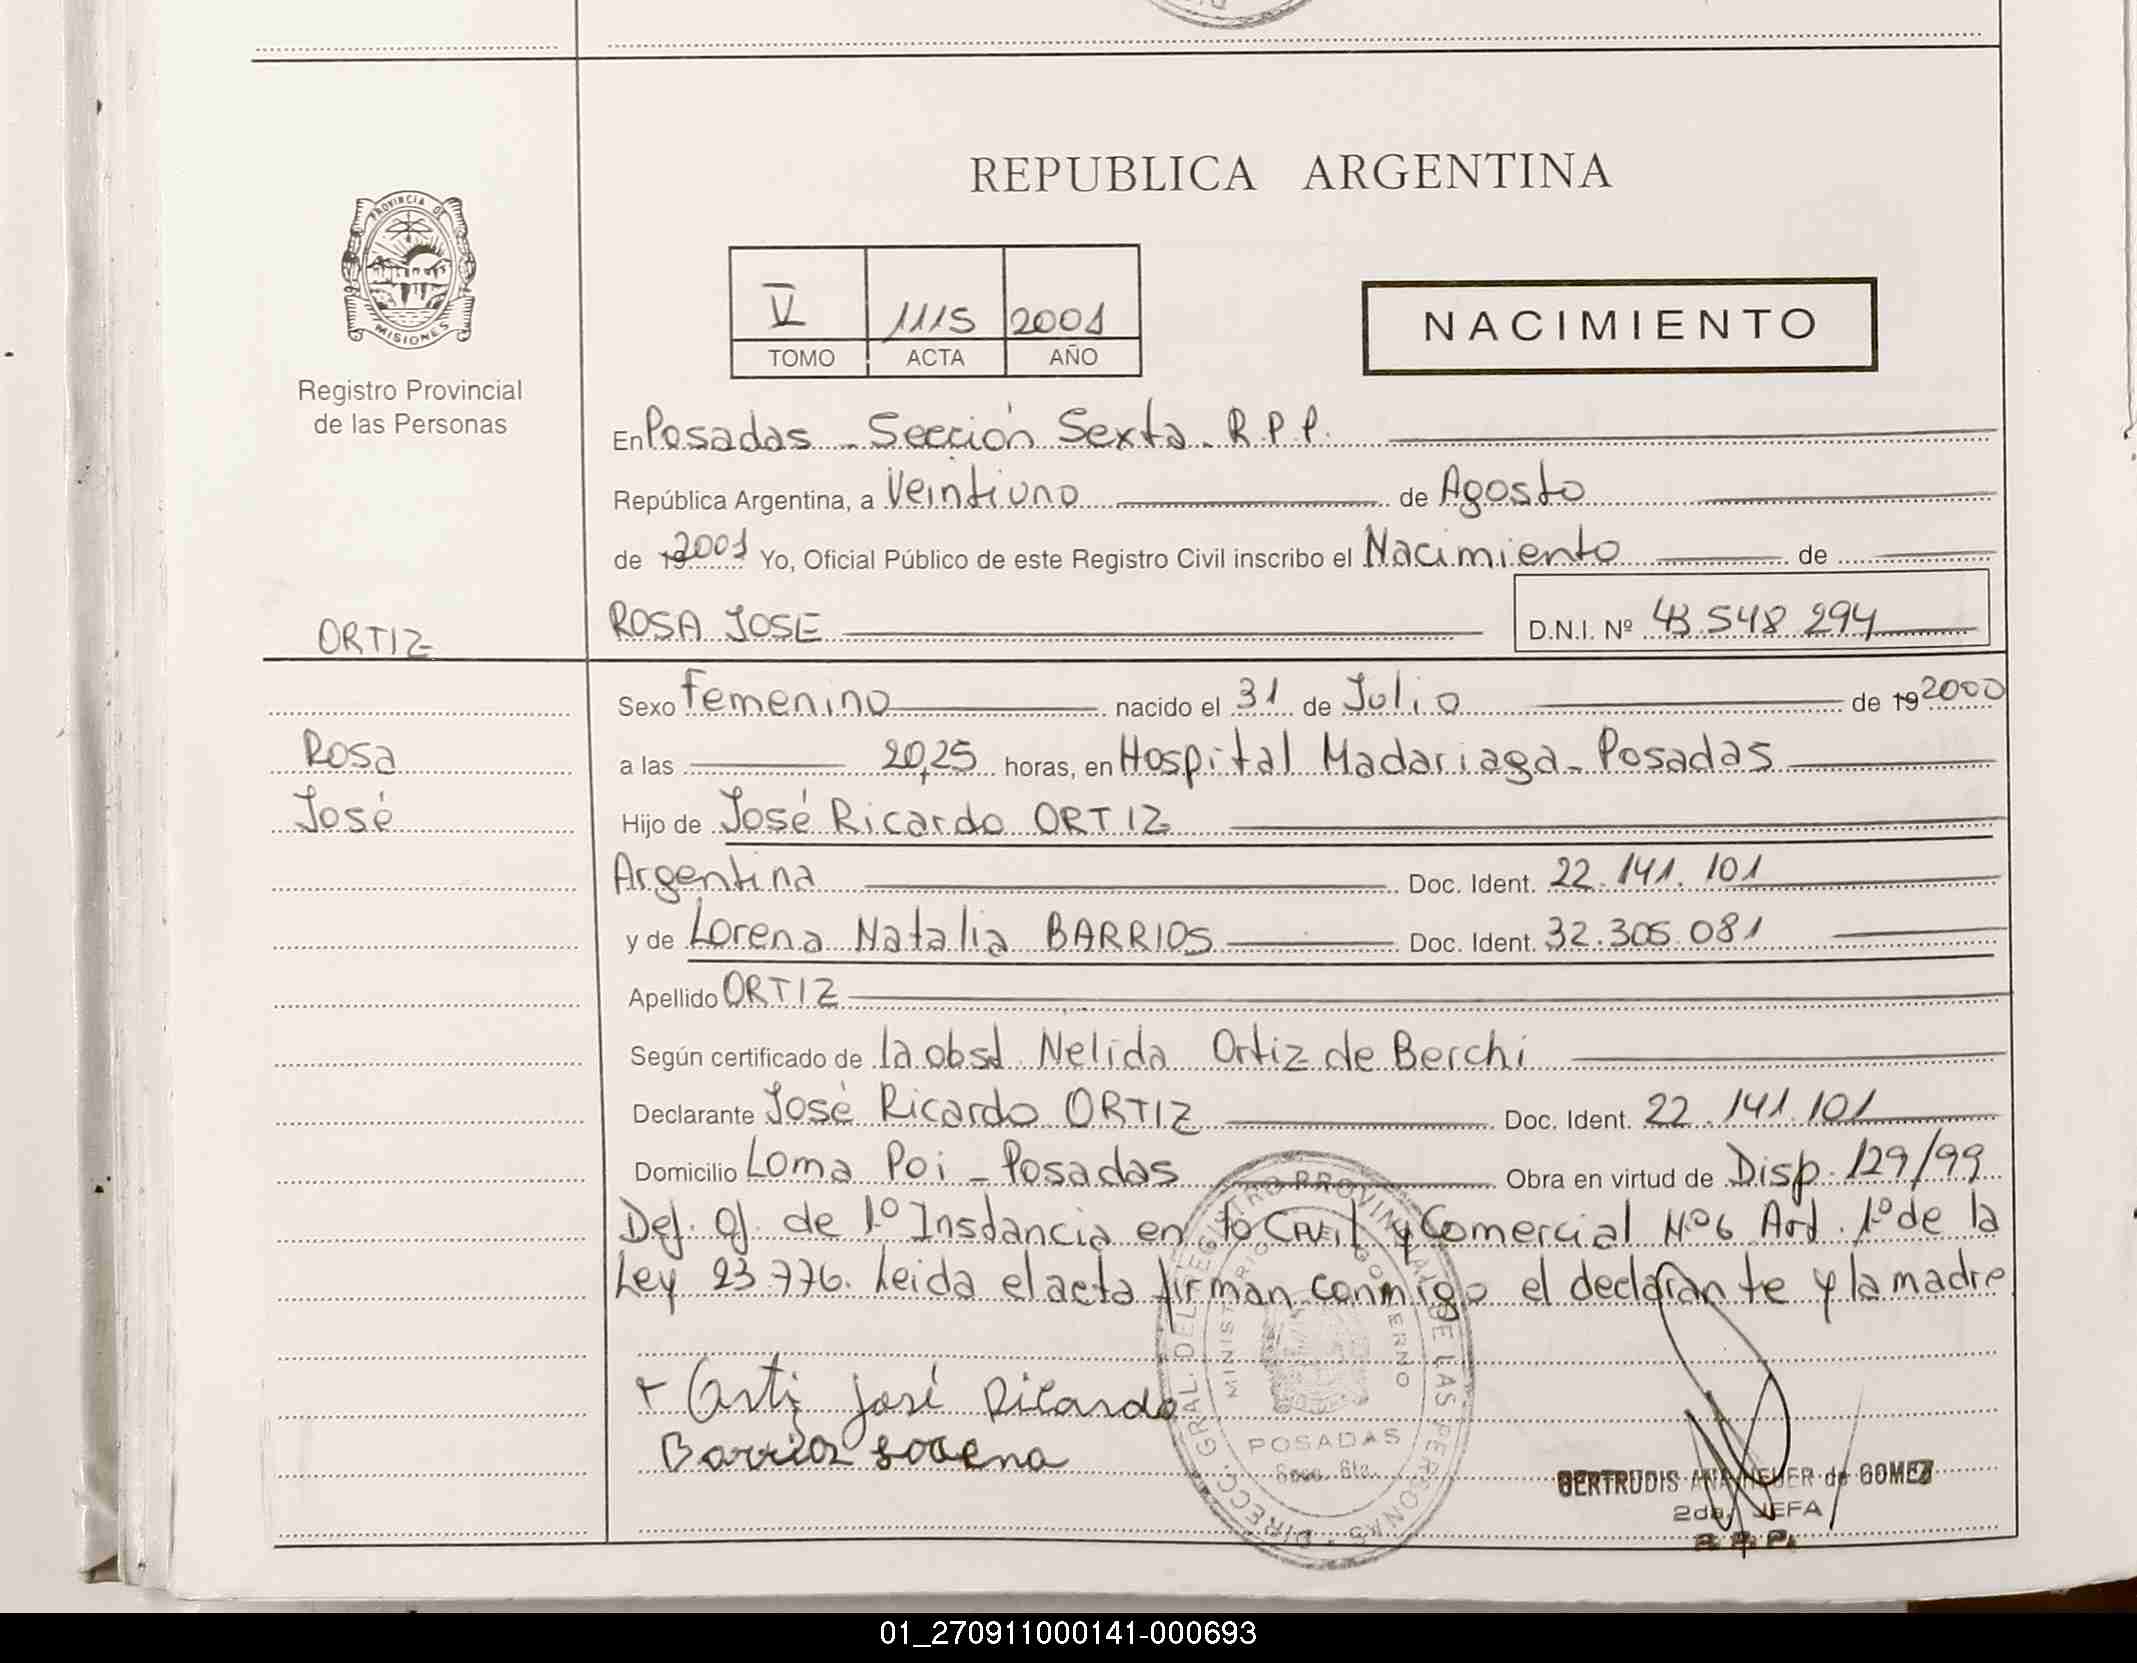 REPUBLICA ARGENTINA
PROVINCIA DE
MISIONES
Registro Provincial
de las Personas
V 1115 2001
TOMO ACTA AÑO
NACIMIENTO
En Posadas - Sección Sexta - R.P.P.
República Argentina, a Veintiuno de Agosto
de 19 2001 Yo, Oficial Público de este Registro Civil inscribo el Nacimiento de
ORTIZ
ROSA JOSE D.N.I. Nº 43.548 294
Sexo Femenino nacido el 31 de Julio de 19 2000
Rosa
a las 20,25 horas, en Hospital Madariaga - Posadas
José
Hijo de José Ricardo ORTIZ
Argentina Doc. Ident. 22.141.101
y de Lorena Natalia BARRIOS Doc. Ident. 32.305.081
Apellido ORTIZ
Según certificado de la obst. Nelida Ortiz de Berchi
Declarante José Ricardo ORTIZ Doc. Ident. 22.141.101
Domicilio Loma Poi - Posadas Obra en virtud de Disp. 129/99
Def. Of. de 1º Instancia en lo Civil y Comercial Nº 6 Art. 1º de la
Ley 23.776. Leida el acta firman conmigo el declarante y la madre
Orti José Ricardo
Barrios Lorena
DIRECC. GRAL. DEL REGISTRO PROVINCIAL DE LAS PERSONAS
MINISTERIO GOBIERNO
POSADAS
Secc. 6ta.
GERTRUDIS ANA de GOMEZ
2da. JEFA
R.P.P.
01_270911000141-000693